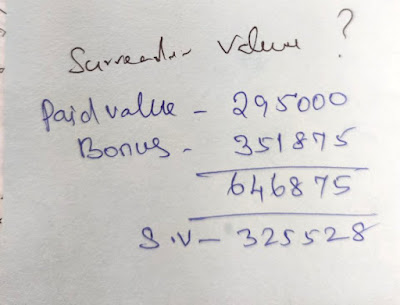 Surrender Value ?
Paid value - 295000
Bonus - 351875
646875
S.V - 325528